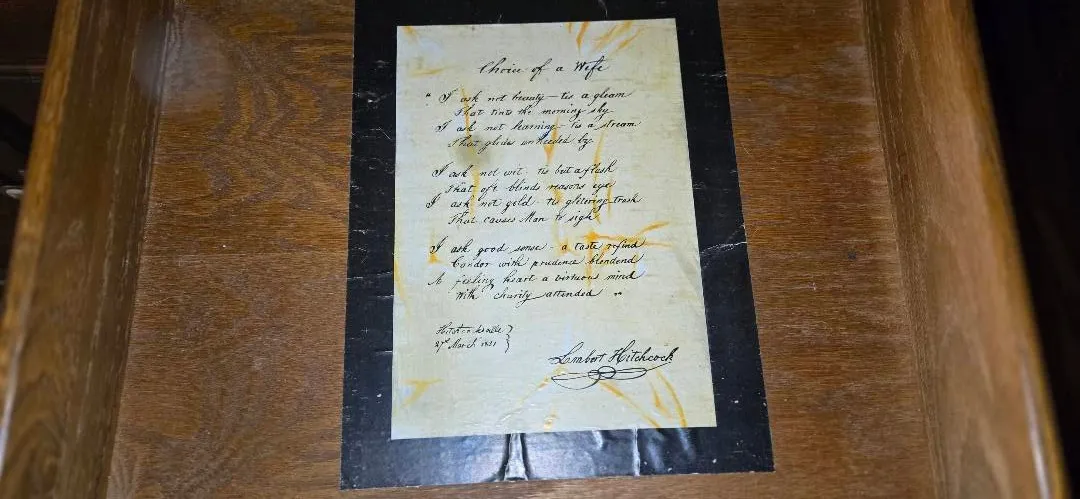 Choice of a Wife
" I ask not beauty - tis a gleam
That tints the morning sky
I ask not learning - tis a stream
That glides unheeded by.
I ask not wit - tis but a flash
That oft blinds reasons eye
I ask not gold - tis glittering trash
That causes Man to sigh
I ask good sense - a taste refind
Candor with prudence blendend
A feeling heart a virtuous mind
With charity attended "
Hitchcocksville }
27th March 1821 }
Lambert Hitchcock